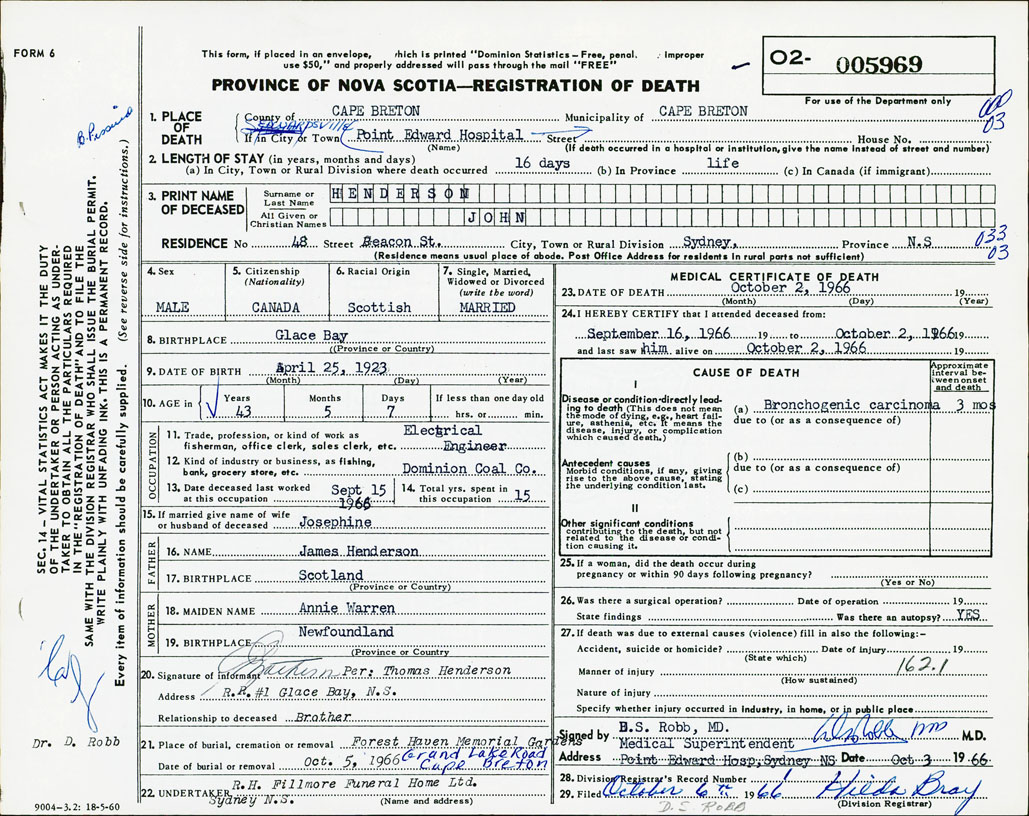 FORM 6
This form, if placed in an envelope, which is printed "Dominion Statistics – Free, penal. Improper
use $50," and properly addressed will pass through the mail "FREE"
PROVINCE OF NOVA SCOTIA—REGISTRATION OF DEATH
02- 005969
For use of the Department only
B. 
000
03
1. PLACE OF DEATH
County of CAPE BRETON Municipality of CAPE BRETON
EDWARDSVILLE
If in City or Town Point Edward Hospital Street House No.
(Name) (If death occurred in a hospital or institution, give the name instead of street and number)
2. LENGTH OF STAY (in years, months and days)
(a) In City, Town or Rural Division where death occurred 16 days (b) In Province life (c) In Canada (if immigrant)
3. PRINT NAME OF DECEASED
Surname or Last Name HENDERSON
All Given or Christian Names JOHN
RESIDENCE No 48 Street Beacon St. City, Town or Rural Division Sydney, Province N.S
033
03
(Residence means usual place of abode. Post Office Address for residents in rural parts not sufficient)
SEC. 14 – VITAL STATISTICS ACT MAKES IT THE DUTY
OF THE UNDERTAKER OR PERSON ACTING AS UNDER-
TAKER TO OBTAIN ALL THE PARTICULARS REQUIRED
IN THE "REGISTRATION OF DEATH" AND TO FILE THE
SAME WITH THE DIVISION REGISTRAR WHO SHALL ISSUE THE BURIAL PERMIT.
WRITE PLAINLY WITH UNFADING INK. THIS IS A PERMANENT RECORD.
Every item of information should be carefully supplied. (See reverse side for instructions.)
4. Sex
MALE
5. Citizenship
(Nationality)
CANADA
6. Racial Origin
Scottish
7. Single, Married,
Widowed or Divorced
(write the word)
MARRIED
8. BIRTHPLACE Glace Bay
((Province or Country)
9. DATE OF BIRTH April 25, 1923
(Month) (Day) (Year)
10. AGE in
Years Months Days If less than one day old
43 5 7 hrs. or min.
OCCUPATION
11. Trade, profession, or kind of work as
fisherman, office clerk, sales clerk, etc.
Electrical
Engineer
12. Kind of industry or business, as fishing,
bank, grocery store, etc. Dominion Coal Co.
13. Date deceased last worked
at this occupation Sept 15
1966
14. Total yrs. spent in
this occupation 15
15. If married give name of wife
or husband of deceased Josephine
FATHER
16. NAME James Henderson
17. BIRTHPLACE Scotland
(Province or Country)
MOTHER
18. MAIDEN NAME Annie Warren
19. BIRTHPLACE Newfoundland
(Province or Country)
20. Signature of informant Per: Thomas Henderson
Address R.R. #1 Glace Bay, N.S.
Relationship to deceased Brother
21. Place of burial, cremation or removal Forest Haven Memorial Gardens
Date of burial or removal Oct. 5, 1966 Grand Lake Road
Cape Breton
22. UNDERTAKER R.H. Fillmore Funeral Home Ltd.
Sydney N.S. (Name and address)
Dr. D. Robb
9004-3.2: 18-5-60
MEDICAL CERTIFICATE OF DEATH
23. DATE OF DEATH October 2, 1966 19
(Month) (Day) (Year)
24. I HEREBY CERTIFY that I attended deceased from:
September 16, 1966 19 to October 2, 1966 19
and last saw him alive on October 2, 1966 19
CAUSE OF DEATH
Approximate
interval be-
tween onset
and death
I
Disease or condition directly lead-
ing to death (This does not mean
the mode of dying, e.g., heart fail-
ure, asthenia, etc. It means the
disease, injury, or complication
which caused death.)
(a) Bronchogenic carcinoma 3 mos
due to (or as a consequence of)
Antecedent causes
Morbid conditions, if any, giving
rise to the above cause, stating
the underlying condition last.
(b)
due to (or as a consequence of)
(c)
II
Other significant conditions
contributing to the death, but not
related to the disease or condi-
tion causing it.
25. If a woman, did the death occur during
pregnancy or within 90 days following pregnancy?
(Yes or No)
26. Was there a surgical operation? Date of operation 19
State findings Was there an autopsy? YES
27. If death was due to external causes (violence) fill in also the following:–
Accident, suicide or homicide? Date of injury 19
(State which)
Manner of injury 162.1
(How sustained)
Nature of injury
Specify whether injury occurred in industry, in home, or in public place
Signed by D.S. Robb, MD. M.D.
Medical Superintendent
Address Point Edward Hosp, Sydney NS Date Oct 3 1966
28. Division Registrar's Record Number 1
29. Filed October 6th 1966 Hilda Bray
(Division Registrar)
D.S. ROBB